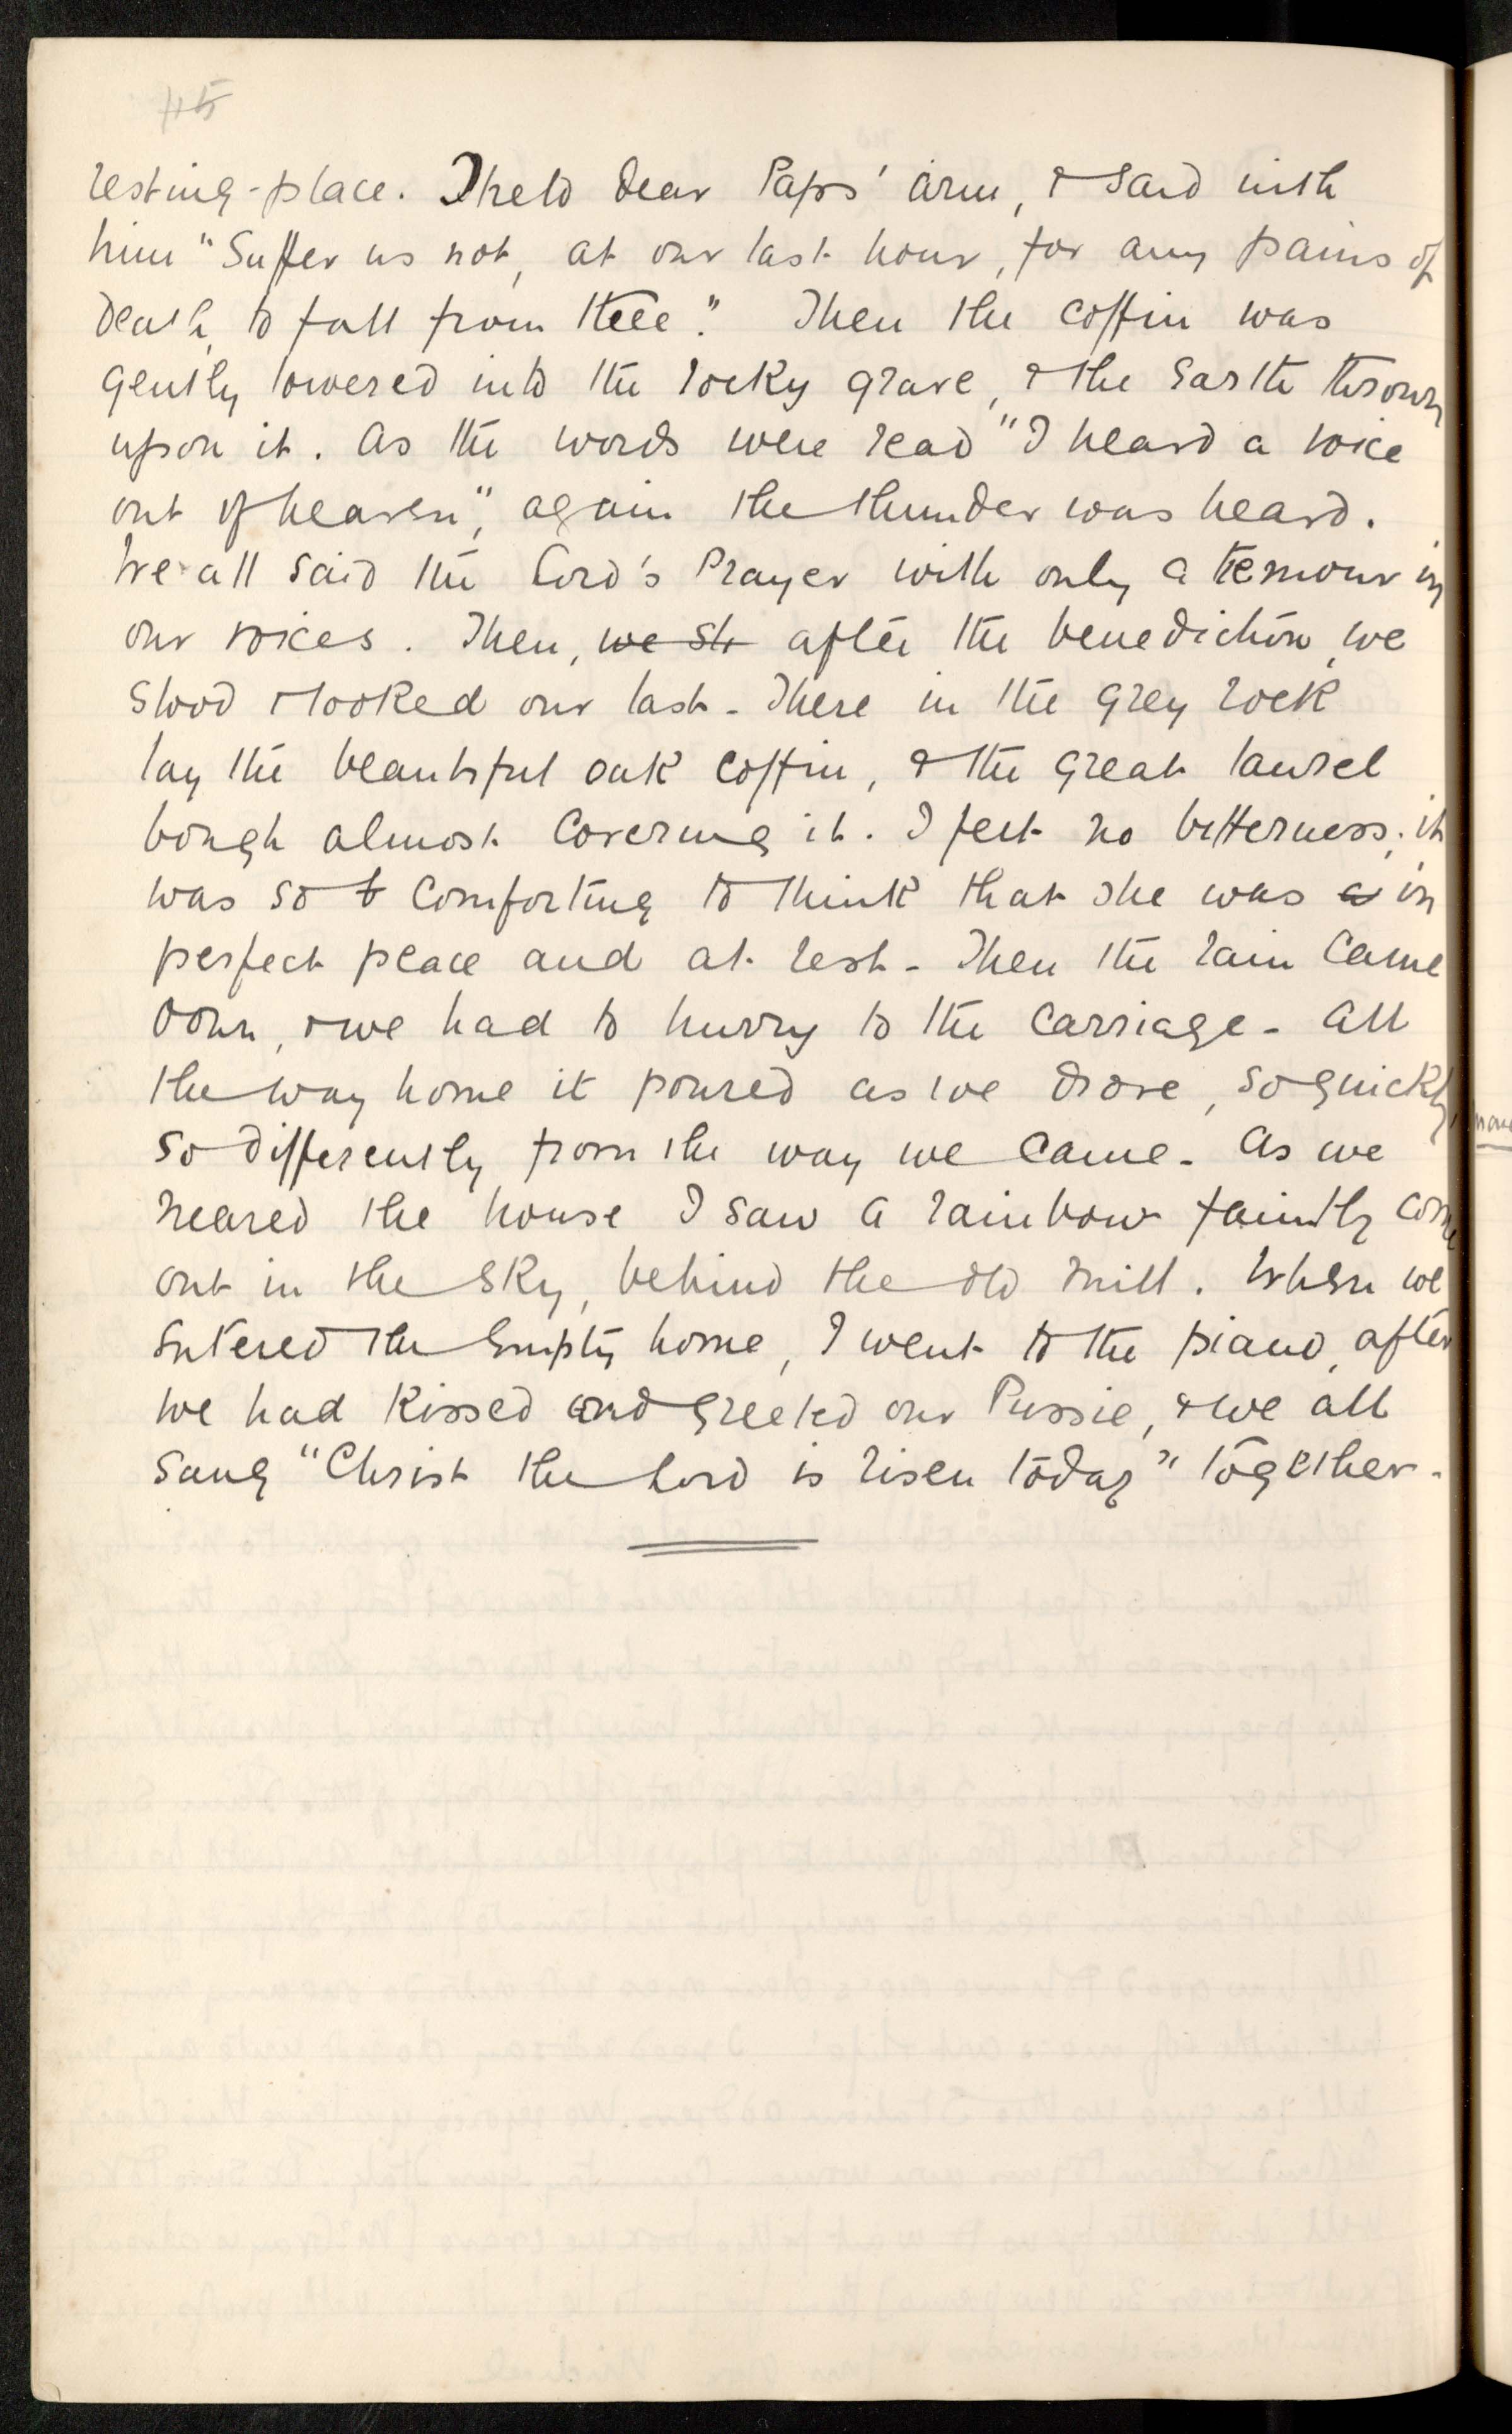 45
resting-place. I held dear Paps' arm, & said with
him "Suffer us not, at our last hour, for any pains of
death, to fall from thee." Then the coffin was
gently lowered into the rocky grave, & the earth thrown
upon it. As the words were read "I heard a voice
out of heaven," again the thunder was heard.
We all said the Lord's Prayer with only a tremour in
our voices. Then, we st after the benediction, we
stood & looked our last. There in the grey rock
lay the beautiful oak coffin, & the great laurel
bough almost covering it. I felt no bitterness; it
was so t comforting to think that she was a in
perfect peace and at rest. Then the rain came
down, & we had to hurry to the carriage. All
the way home it poured as we drove, so quickly,
so differently from the way we came. As we
neared the house I saw a rainbow faintly come
out in the sky, behind the old mill. When we
entered the empty home, I went to the piano, after
we had kissed and greeted our Pussie, & we all
sang "Christ the Lord is risen today" together.